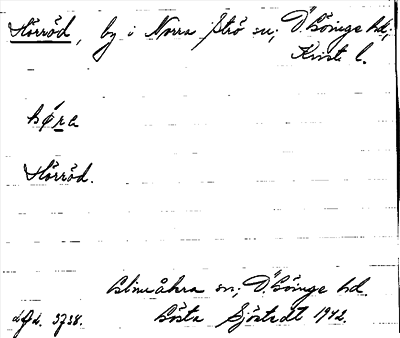 Hörröd, by i Norra Strö sn; Ö. Göinge hd;
Krist. l.
hø̄ra
Hörröd.
Glimåkra sn, Ö. Göinge hd
Gösta Sjöstedt 1942.
3738.